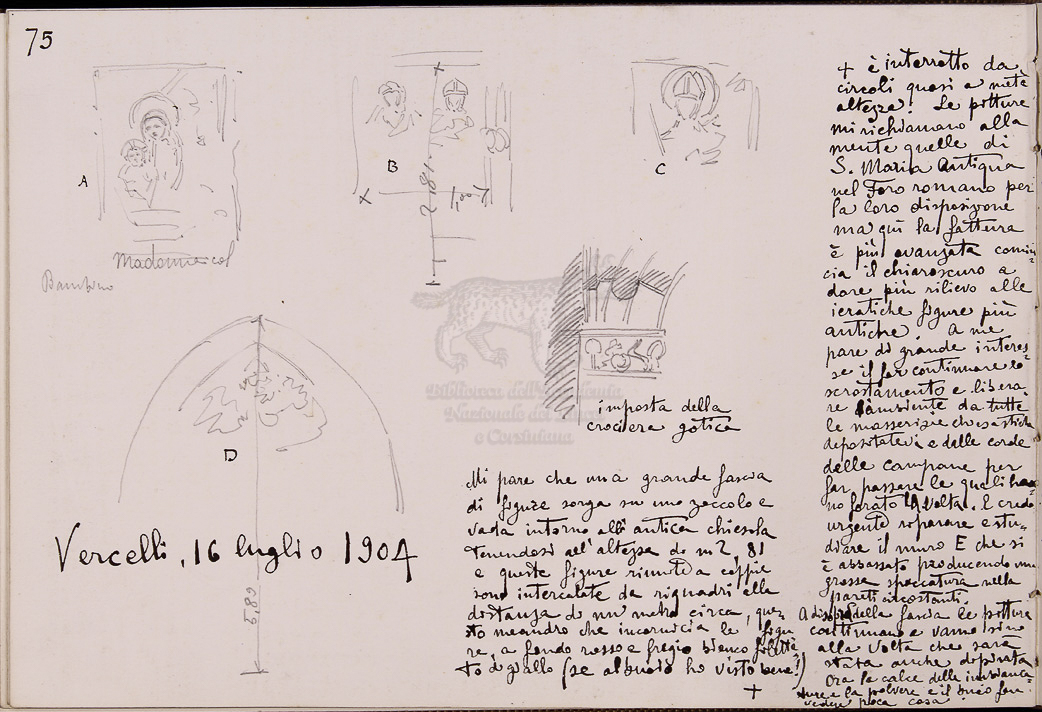 75
A
Madonna col
Bambino
B
2.81
1,00
C
D
5,89
Vercelli, 16 luglio 1904
imposta della
crociera gotica
Biblioteca dell'Accademia
Nazionale dei Lincei
e Corsiniana
Mi pare che una grande fascia
di figure sorga su uno zoccolo e
vada intorno all'antica chiesola
tenendosi all'altezza di m 2,81
e queste figure riunite a coppie
sono intercalate da riquadri alla
distanza di un metro circa, que-
sto meandro che incornicia le figu
re, a fondo rosso e fregio bianco filetta
to di giallo (se al buio ho visto bene!)
+
+ è interrotto da
circoli quasi a metà
altezza! Le pitture
mi richiamano alla
mente quelle di
S. Maria Antiqua
nel Foro romano per
la loro disposizione
ma qui la fattura
è più avanzata comin
cia il chiaroscuro a
dare più rilievo alle
ieratiche figure più
antiche. A me
pare di grande interes
se il far continuare lo
scrostamento e libera
re l'ambiente da tutte
le masserizie che
depositatevi e dalle corde
delle campane per
far passare le quali han
no forato la volta. E credo
urgente riparare e stu-
diare il muro E che si
è abbassato producendo una
grossa spaccatura nelle
pareti circostanti.
A disopra della fascia le pitture
continuano e vanno sino
alla volta che sarà
stata anche dipinta
Ora la calce delle imbianca
ture e la polvere e il buio fan
vedere poca cosa